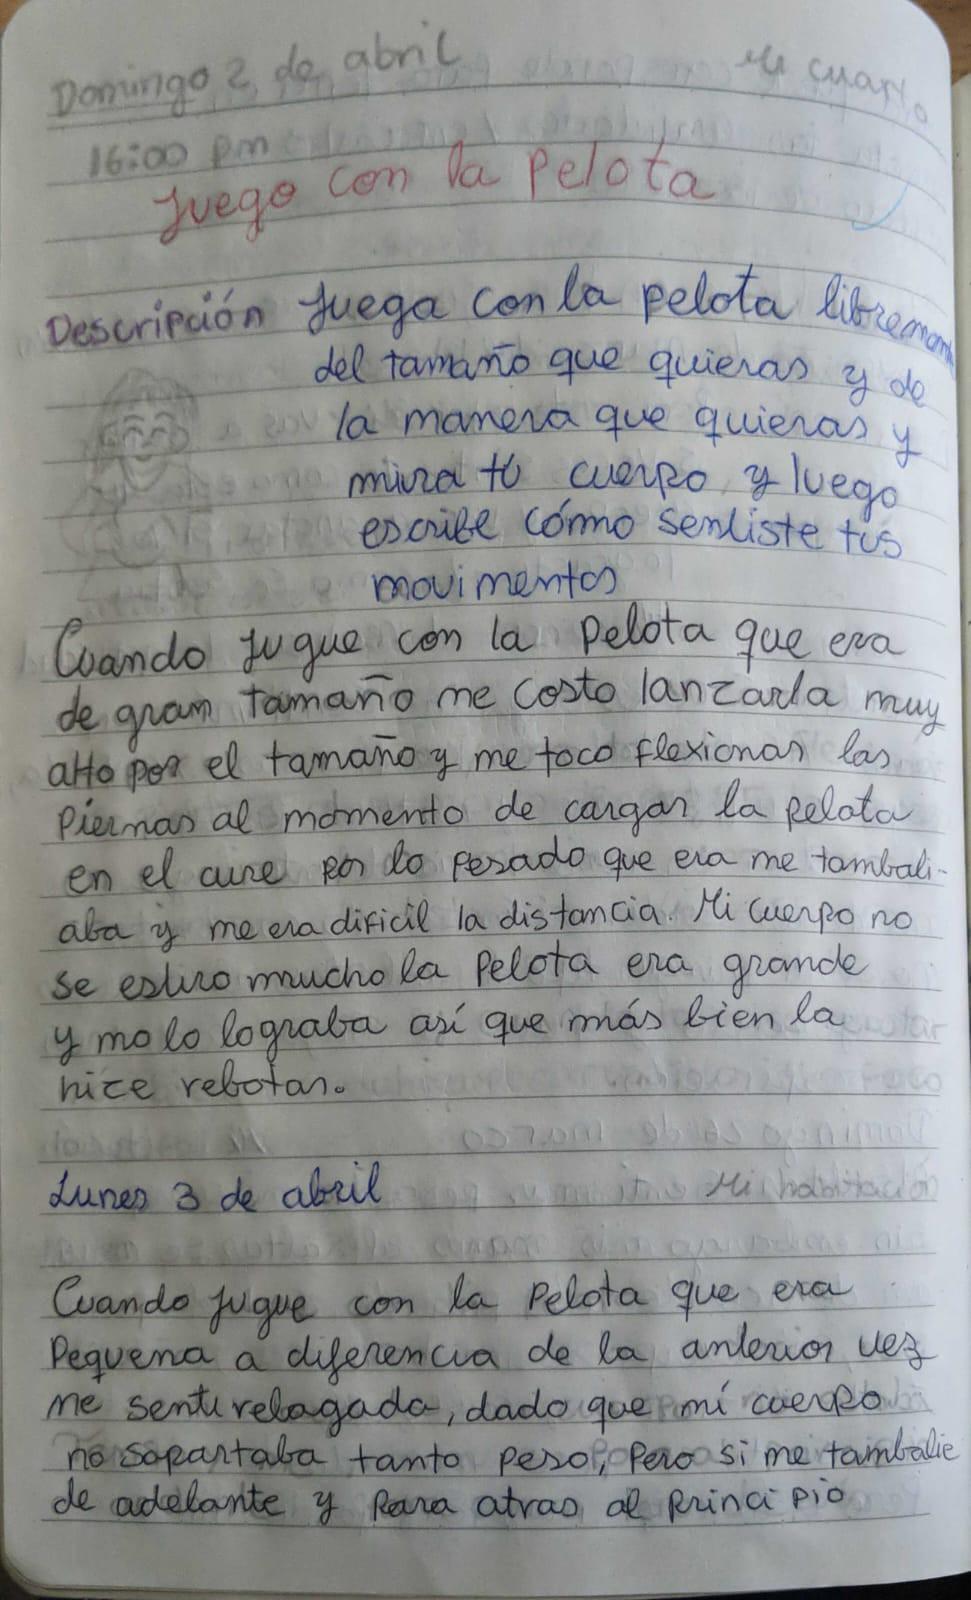 Domingo 2 de abril Mi cuarto
16:00 pm
Juego con la pelota
Descripción Juega con la pelota libremente
del tamaño que quieras y de
la manera que quieras y
mira tú cuerpo y luego
escribe cómo sentiste tus
movimentos
Cuando jugue con la pelota que era
de gran tamaño me costo lanzarla muy
alto por el tamaño y me toco flexionar las
piernas al momento de cargar la pelota
en el aire por lo pesado que era me tambali-
aba y me era dificil la distancia. Mi cuerpo no
se estiro mucho la pelota era grande
y no lo lograba así que más bien la
hice rebotar.
Lunes 3 de abril Mi habitación
Cuando jugue con la pelota que era
Pequena a diferencia de la anterior vez
me senti relagada, dado que mí cuerpo
no sopartaba tanto peso, pero si me tambalie
de adelante y para atras al principio